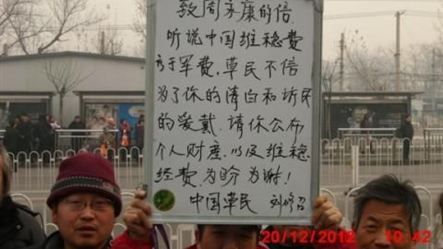 致周永康的信
听说中国维稳费
高于军费，草民不信
为了你的清白和访民
的爱戴，请你公布
个人财产，以及维稳
经费，为盼为谢！
中国草民
20/12/2012 10:42